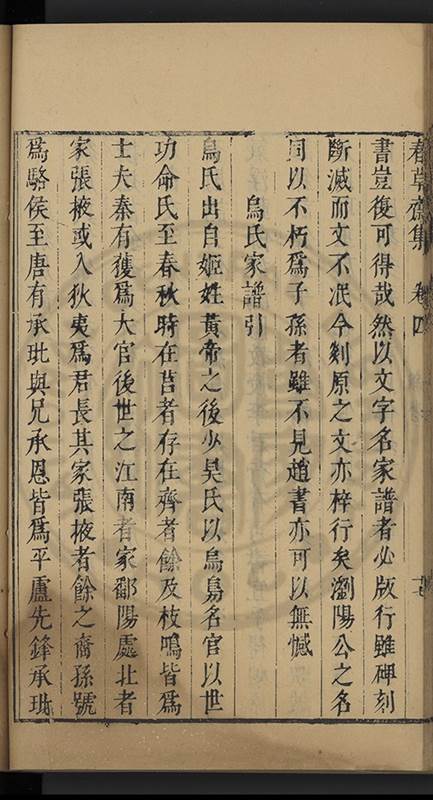 春草齋集 卷四
書豈復可得哉然以文字名家譜者必版行雖碑刻
斷滅而文不泯今剡原之文亦梓行矣瀏陽公之名
同以不朽爲子孫者雖不見趙書亦可以無憾
烏氏家譜引
烏氏出自姬姓黃帝之後少昊氏以烏鳥名官以世
功命氏至春秋時在莒者存在齊者餘及枝鳴皆爲
士夫秦有獲爲大官後世之江南者家鄱陽處北者
家張掖或入狄夷爲君長其家張掖者餘之裔孫號
爲駱侯至唐有承玼與兄承恩皆爲平盧先鋒承玼